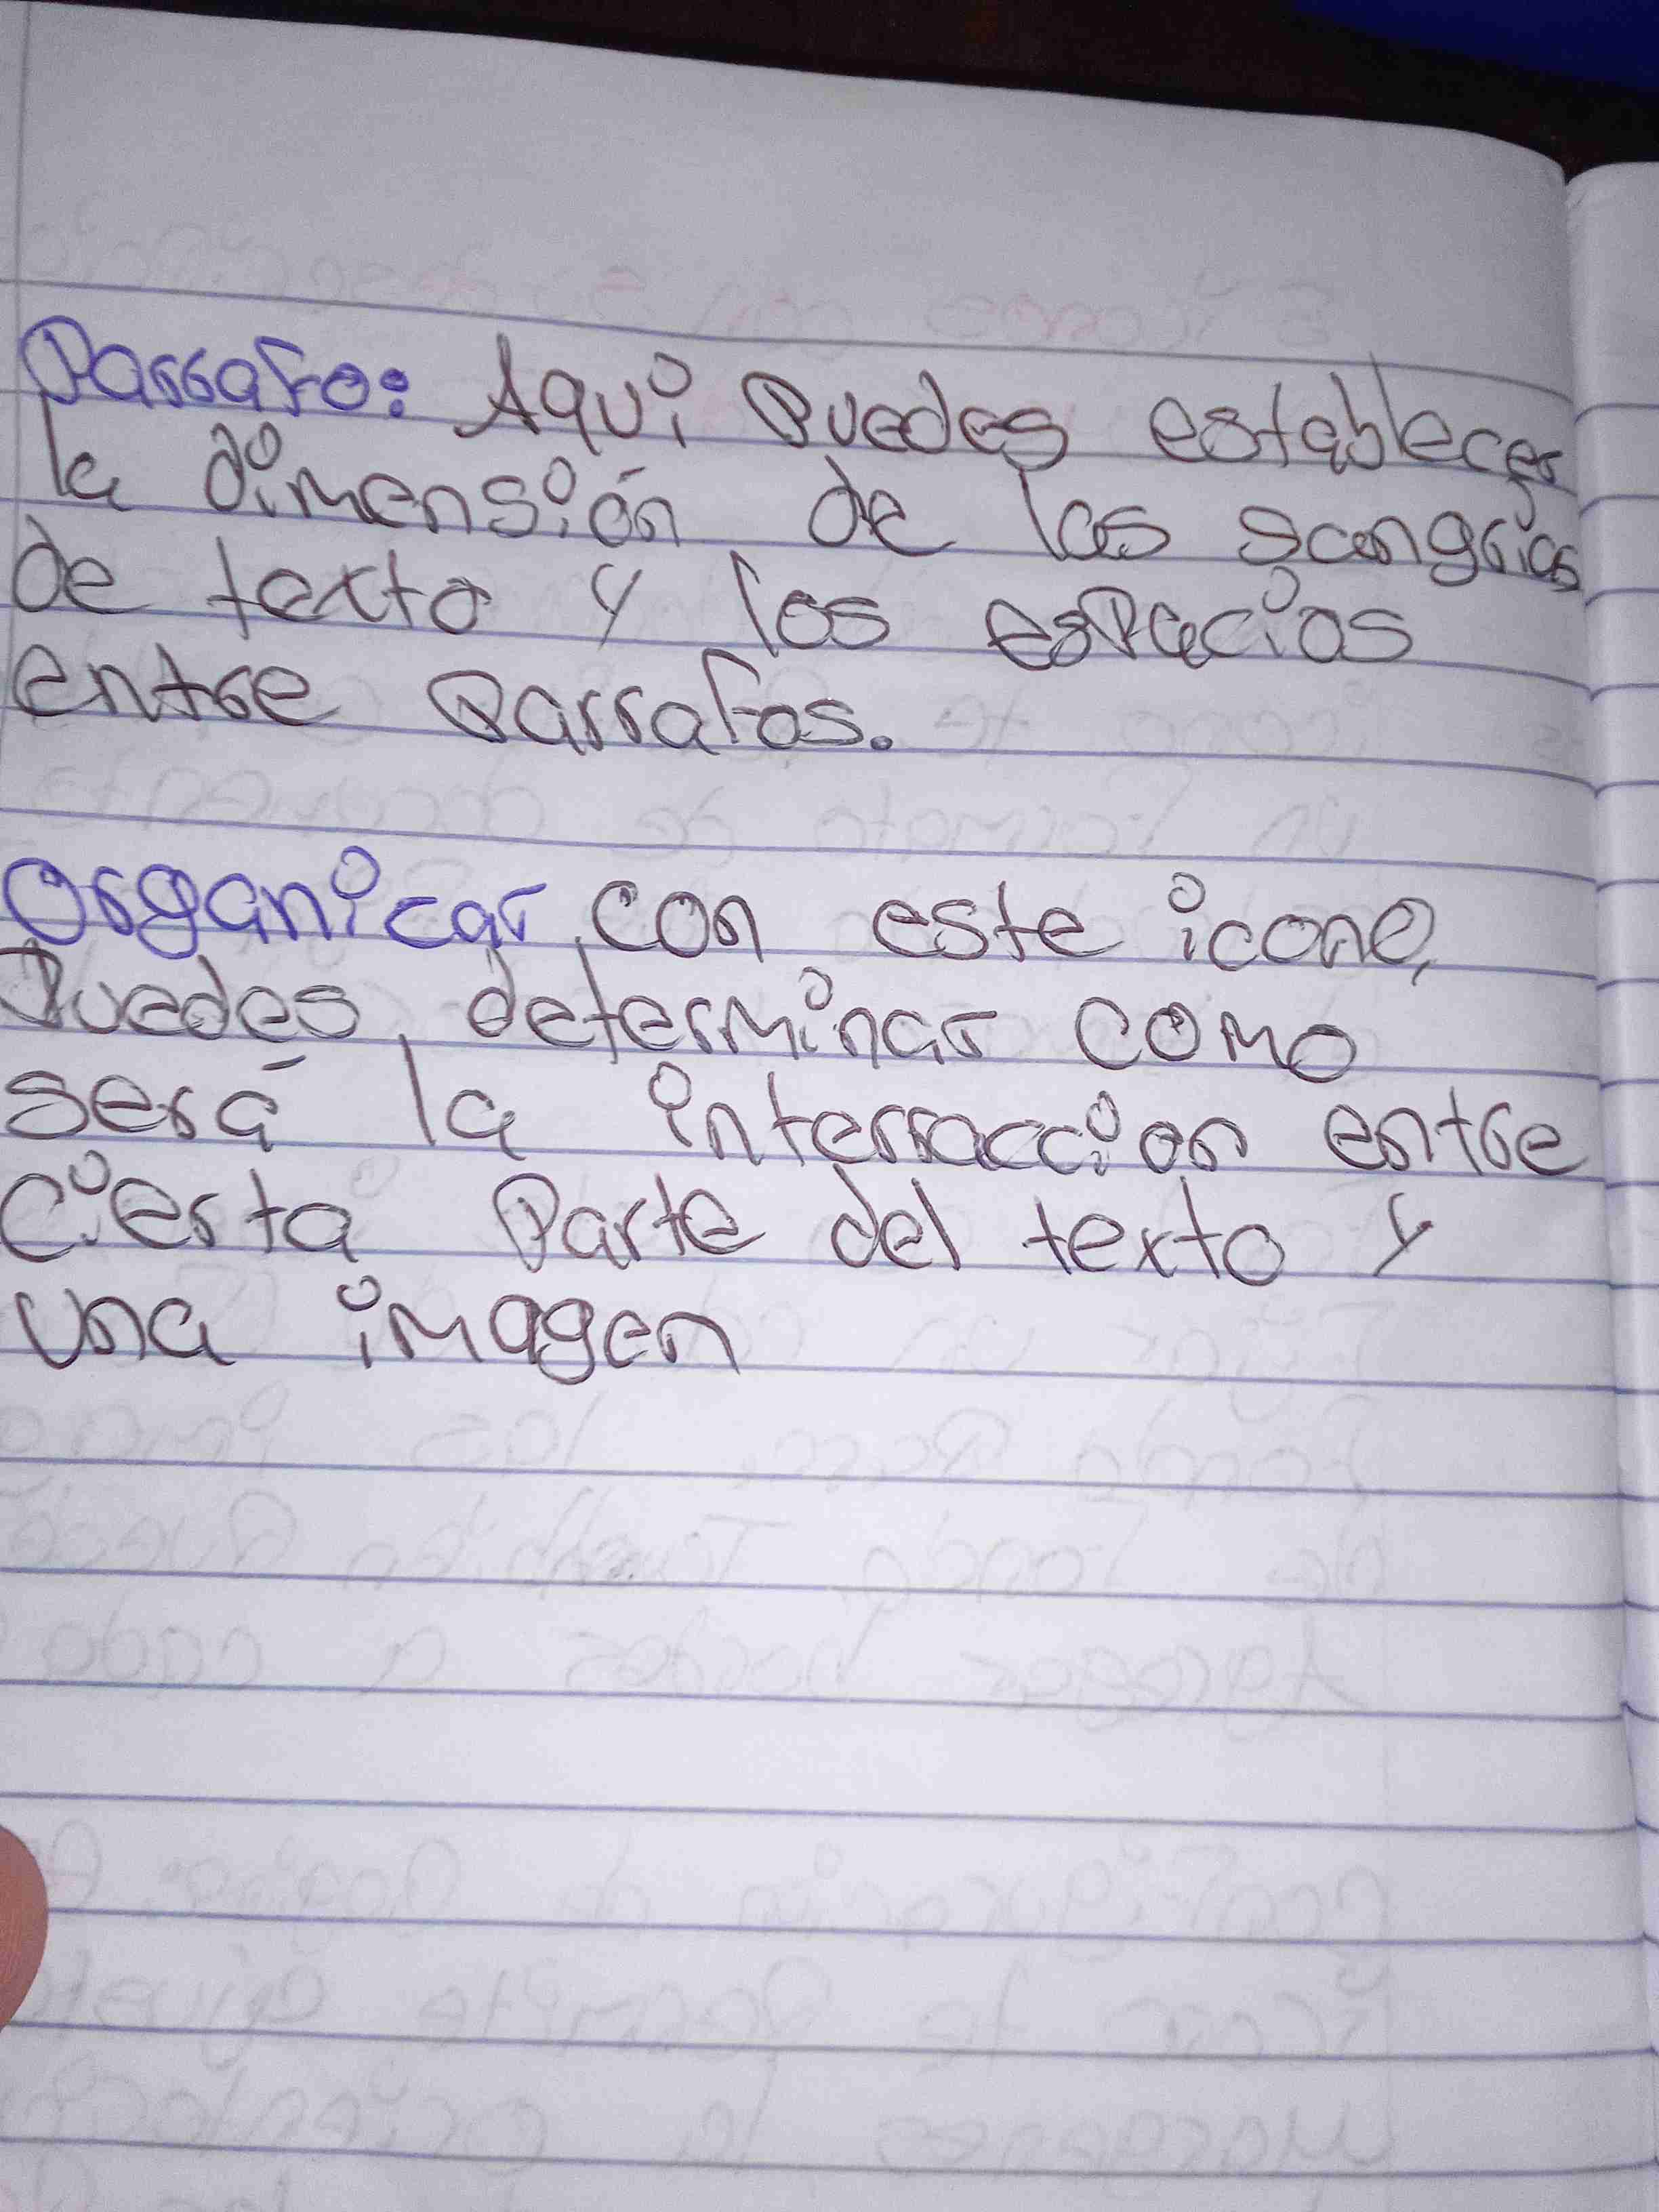 Parrafo: Aqui Puedes establecer
la dimensión de las sangrias
de texto y los espacios
entre Parrafos.
Organicar con este icono,
Puedes, determinar como
será la interraccion entre
cierta Parte del texto y
una imagen